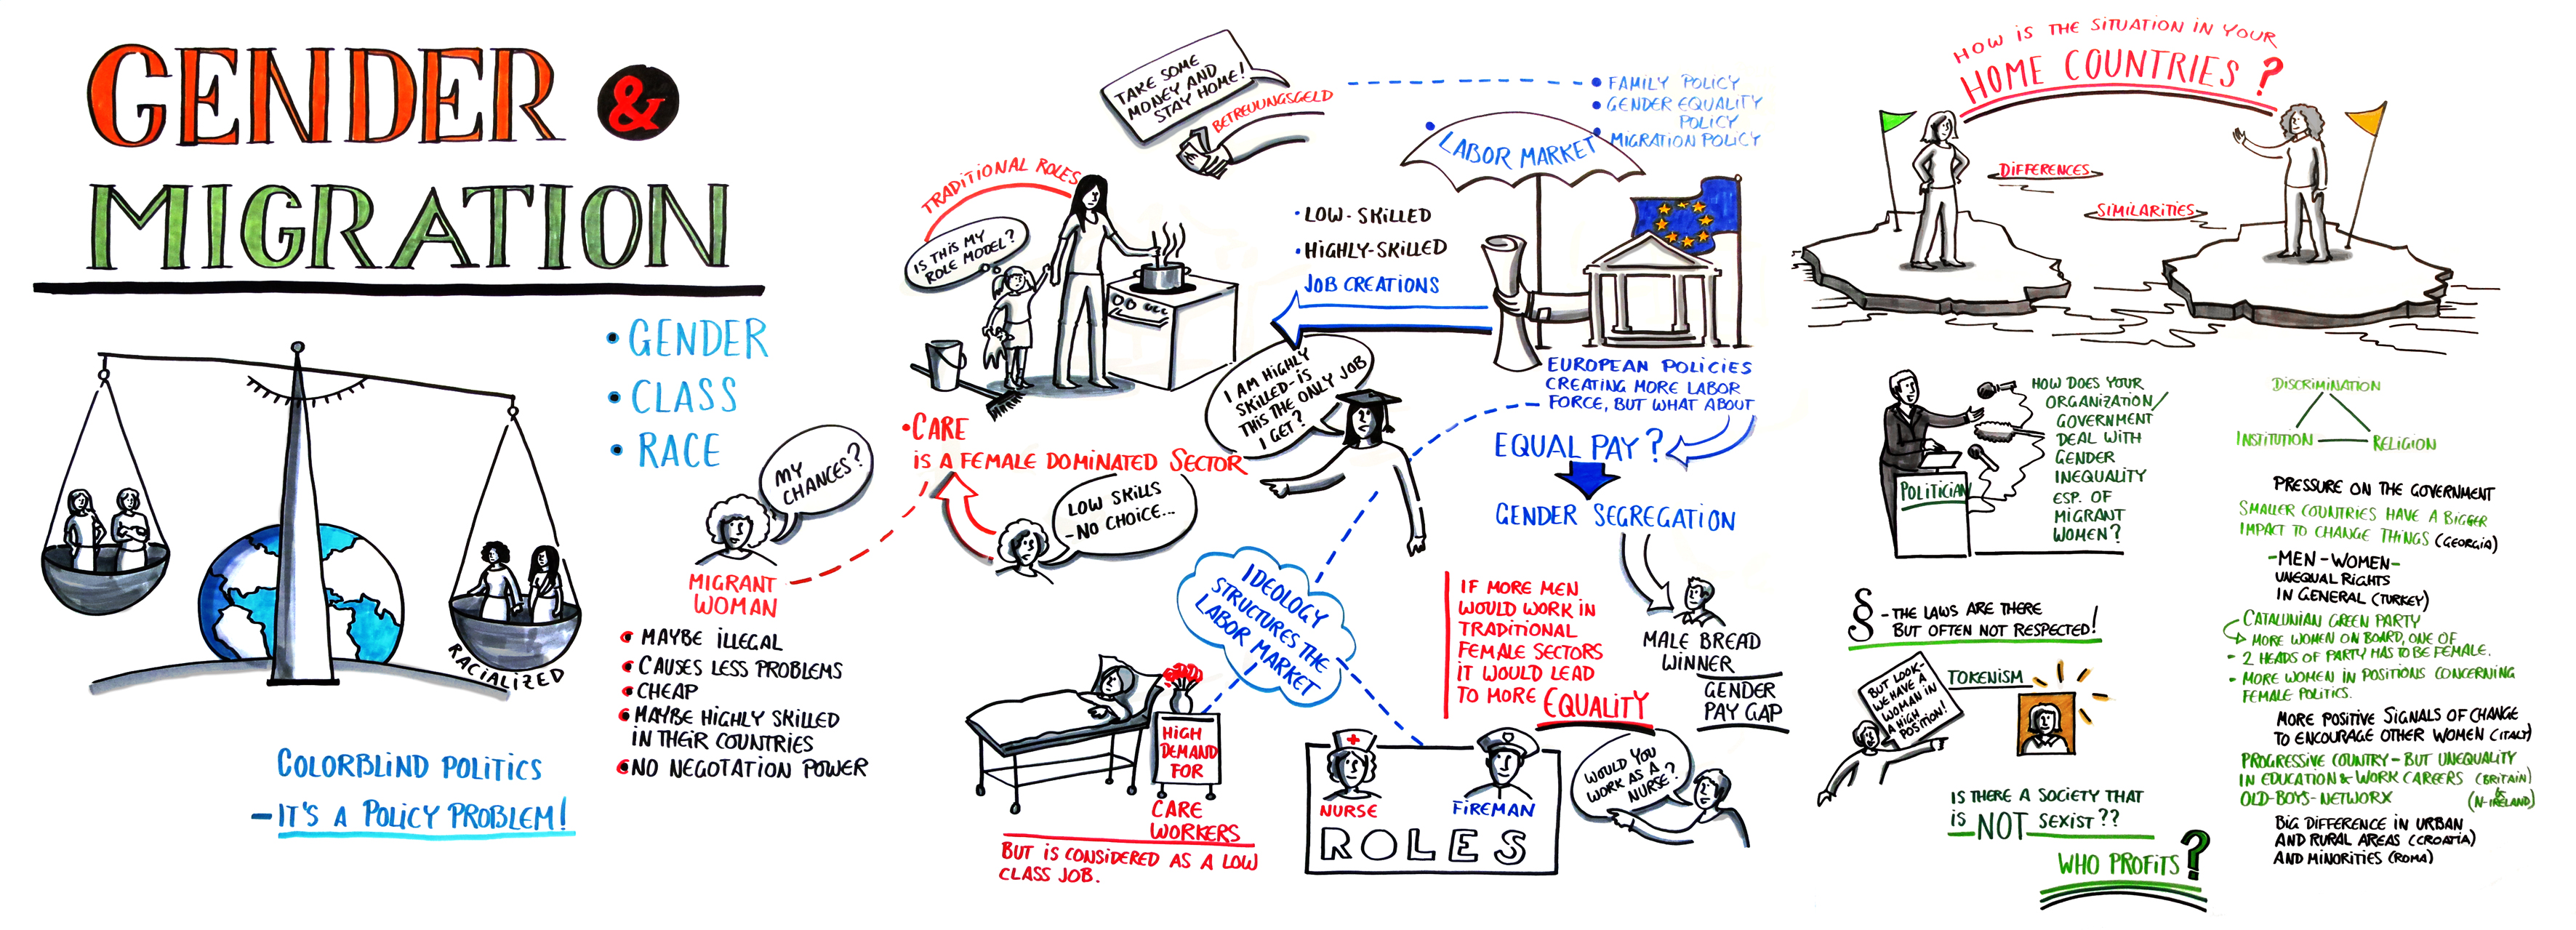 GENDER &
MIGRATION
• GENDER
• CLASS
• RACE
RACIALIZED
COLORBLIND POLITICS
– IT'S A POLICY PROBLEM!
MY
CHANCES?
MIGRANT
WOMAN
• MAYBE ILLEGAL
• CAUSES LESS PROBLEMS
• CHEAP
• MAYBE HIGHLY SKILLED
IN THEIR COUNTRIES
• NO NEGOTATION POWER
TAKE SOME
MONEY AND
STAY HOME!
BETREUUNGSGELD
TRADITIONAL ROLES
IS THIS MY
ROLE MODEL?
• CARE
IS A FEMALE DOMINATED SECTOR
LOW SKILLS
- NO CHOICE...
• FAMILY POLICY
• GENDER EQUALITY
POLICY
• MIGRATION POLICY
• LABOR MARKET
• LOW-SKILLED
• HIGHLY-SKILLED
JOB CREATIONS
I AM HIGHLY
SKILLED-IS
THIS THE ONLY JOB
I GET?
EUROPEAN POLICIES
CREATING MORE LABOR
FORCE, BUT WHAT ABOUT
EQUAL PAY?
GENDER SEGREGATION
MALE BREAD
WINNER
GENDER
PAY GAP
IDEOLOGY
STRUCTURES THE
LABOR MARKET
IF MORE MEN
WOULD WORK IN
TRADITIONAL
FEMALE SECTORS
IT WOULD LEAD
TO MORE EQUALITY
HIGH
DEMAND
FOR
CARE
WORKERS
BUT IS CONSIDERED AS A LOW
CLASS JOB.
NURSE
FIREMAN
ROLES
WOULD YOU
WORK AS A
NURSE?
HOW IS THE SITUATION IN YOUR
HOME COUNTRIES?
DIFFERENCES
SIMILARITIES
POLITICIAN
HOW DOES YOUR
ORGANIZATION/
GOVERNMENT
DEAL WITH
GENDER
INEQUALITY
ESP. OF
MIGRANT
WOMEN?
§ - THE LAWS ARE THERE
BUT OFTEN NOT RESPECTED!
BUT LOOK-
WE HAVE A
WOMAN IN
A HIGH
POSITION!
TOKENISM
IS THERE A SOCIETY THAT
IS NOT SEXIST??
WHO PROFITS?
DISCRIMINATION
INSTITUTION
RELIGION
PRESSURE ON THE GOVERNMENT
SMALLER COUNTRIES HAVE A BIGGER
IMPACT TO CHANGE THINGS (GEORGIA)
- MEN - WOMEN -
UNEQUAL RIGHTS
IN GENERAL (TURKEY)
CATALUNIAN GREEN PARTY
MORE WOMEN ON BOARD, ONE OF
- 2 HEADS OF PARTY HAS TO BE FEMALE.
- MORE WOMEN IN POSITIONS CONCERNING
FEMALE POLITICS.
MORE POSITIVE SIGNALS OF CHANGE
TO ENCOURAGE OTHER WOMEN (ITALY)
PROGRESSIVE COUNTRY - BUT UNEQUALITY
IN EDUCATION & WORK CAREERS (BRITAIN)
&
OLD-BOYS-NETWORX (N-IRELAND)
BIG DIFFERENCE IN URBAN
AND RURAL AREAS (CROATIA)
AND MINORITIES (ROMA)